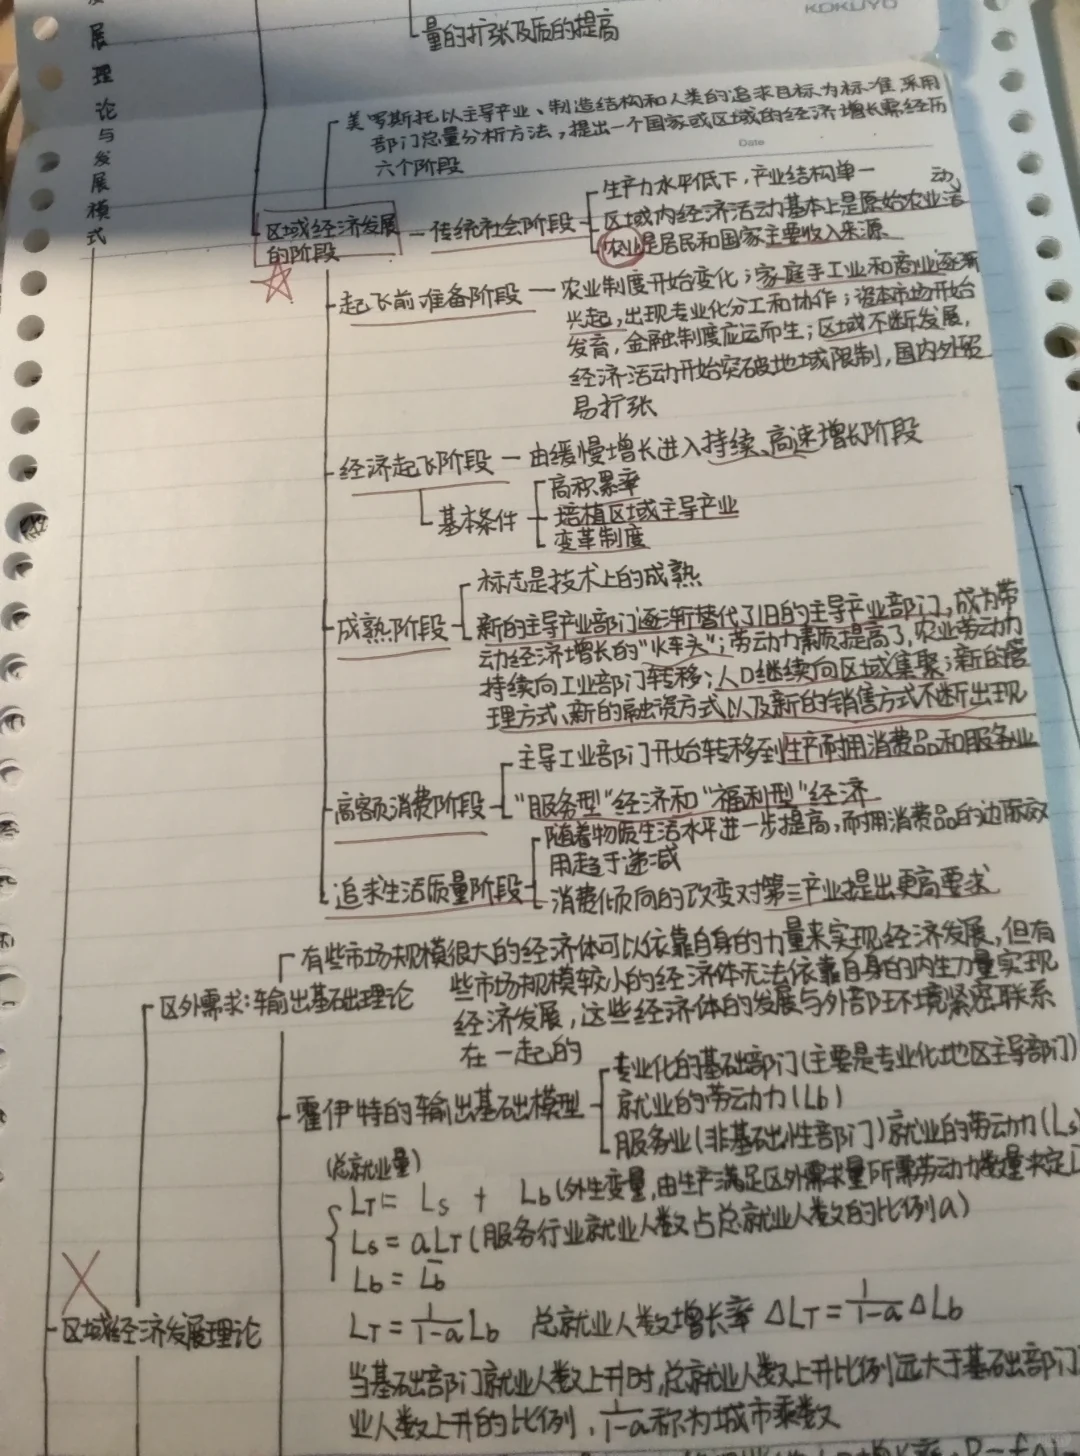 KOKUYO
展理论与发展模式
量的扩张及质的提高
美罗斯托以主导产业、制造结构和人类的追求目标为标准,采用
部门总量分析方法,提出一个国家或区域的经济增长需经历
六个阶段
Date
区域经济发展
的阶段
传统社会阶段
生产力水平低下,产业结构单一
区域内经济活动基本上是原始农业活
动
农业是居民和国家主要收入来源
起飞前准备阶段
农业制度开始变化;家庭手工业和商业逐渐
兴起,出现专业化分工和协作;资本市场开始
发育,金融制度应运而生;区域不断发展,
经济活动开始突破地域限制,国内外贸
易扩张
经济起飞阶段
由缓慢增长进入持续、高速增长阶段
基本条件
高积累率
培植区域主导产业
变革制度
成熟阶段
标志是技术上的成熟
新的主导产业部门逐渐替代了旧的主导产业部门,成为带
动经济增长的"火车头";劳动力素质提高了,农业劳动力
持续向工业部门转移;人口继续向区域集聚;新的管
理方式、新的融资方式以及新的销售方式不断出现
高额消费阶段
主导工业部门开始转移到生产耐用消费品和服务业
"服务型"经济和"福利型"经济
追求生活质量阶段
随着物质生活水平进一步提高,耐用消费品的边际效
用趋于递减
消费倾向的改变对第三产业提出更高要求
区域经济发展理论
区外需求:输出基础理论
有些市场规模很大的经济体可以依靠自身的力量来实现经济发展,但有
些市场规模较小的经济体无法依靠自身的内生力量实现
经济发展,这些经济体的发展与外部环境紧密联系
在一起的
霍伊特的输出基础模型
专业化的基础部门(主要是专业化地区主导部门)
就业的劳动力(Lb)
服务业(非基础性部门)就业的劳动力(Ls
(总就业量)
LT = Ls + Lb(外生变量,由生产满足区外需求量所需劳动力数量决定
Ls = aLT(服务行业就业人数占总就业人数的比例a)
Lb = L̄b
LT = 1/(1-a) Lb 总就业人数增长率 ΔLT = 1/(1-a) ΔLb
当基础部门就业人数上升时,总就业人数上升比例远大于基础部门
业人数上升的比例,1/(1-a)称为城市乘数